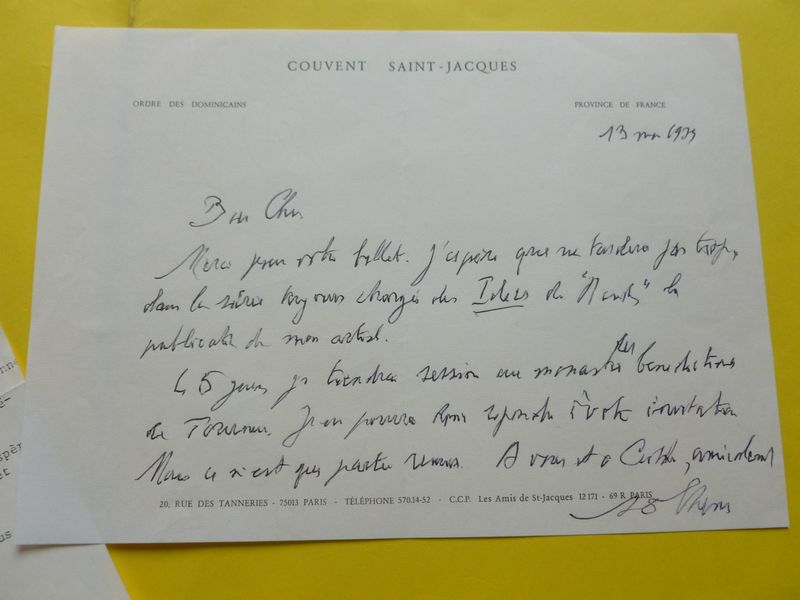 COUVENT SAINT-JACQUES
ORDRE DES DOMINICAINS
PROVINCE DE FRANCE
13 mai 1979
Bien Cher
Merci pour votre billet. J'espère que ne tardera pas trop,
dans la série toujours chargée des Idées du "Monde" la
publication de mon article.
Le 5 juin je tiendrai session au monastère des bénédictines
de Je ne pourrai donc répondre à votre invitation
Mais ce n'est que partie remise. A vous et à amicalement
20, RUE DES TANNERIES - 75013 PARIS - TÉLÉPHONE 570.14-52 - C.C.P. Les Amis de St-Jacques 12 171 - 69 R PARIS
nn
é-
spèr
et
us